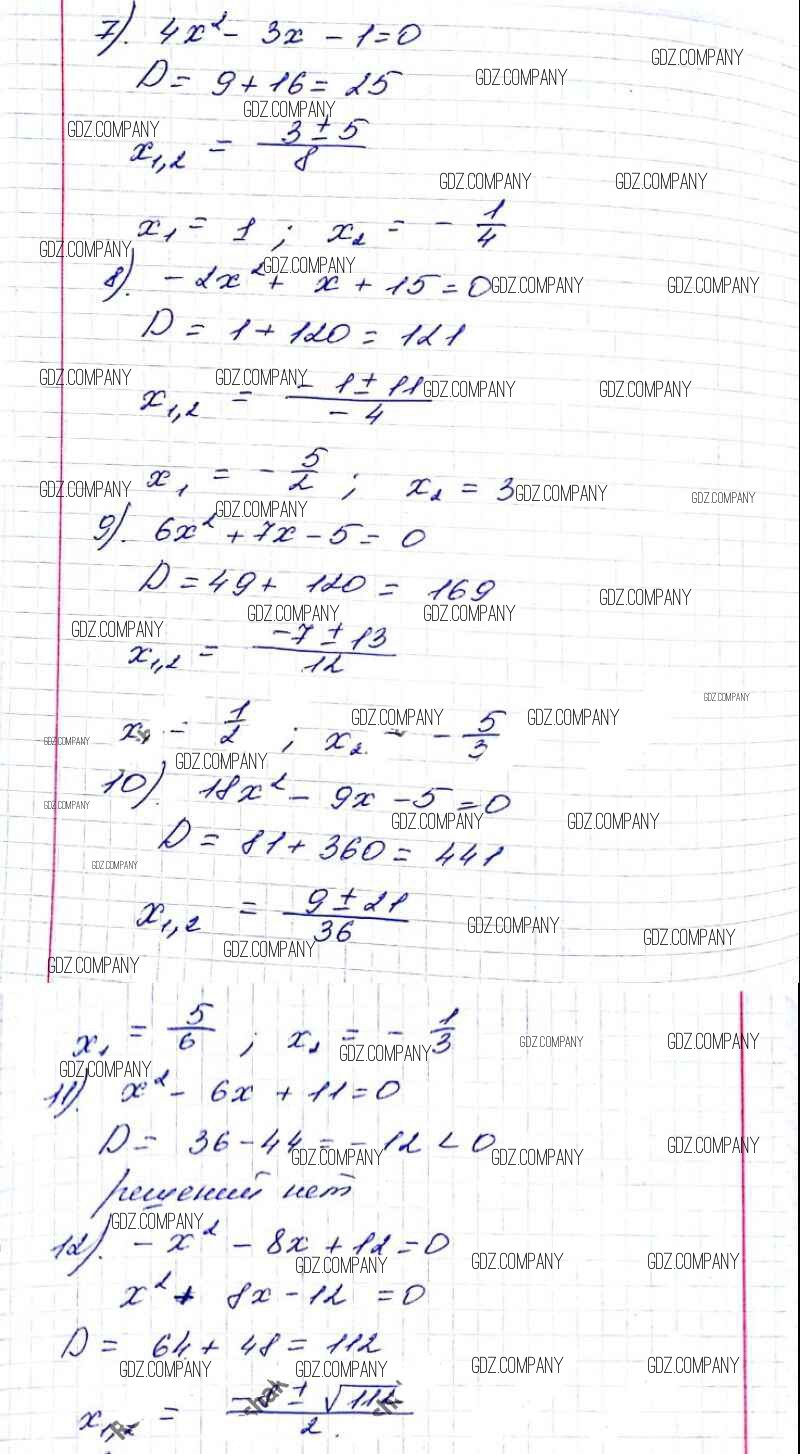 7). 4x² - 3x - 1 = 0
D = 9 + 16 = 25
x₁,₂ = (3 ± 5)/8
x₁ = 1 ; x₂ = - 1/4
8). - 2x² + x + 15 = 0
D = 1 + 120 = 121
x₁,₂ = (- 1 ± 11)/(- 4)
x₁ = - 5/2 ; x₂ = 3
9). 6x² + 7x - 5 = 0
D = 49 + 120 = 169
x₁,₂ = (-7 ± 13)/12
x₁ = 1/2 ; x₂ = - 5/3
10). 18x² - 9x - 5 = 0
D = 81 + 360 = 441
x₁,₂ = (9 ± 21)/36
x₁ = 5/6 ; x₂ = - 1/3
11). x² - 6x + 11 = 0
D = 36 - 44 = - 12 < 0
решений нет
12). - x² - 8x + 12 = 0
x² + 8x - 12 = 0
D = 64 + 48 = 112
x₁,₂ = (- ± √112)/2
GDZ.COMPANY